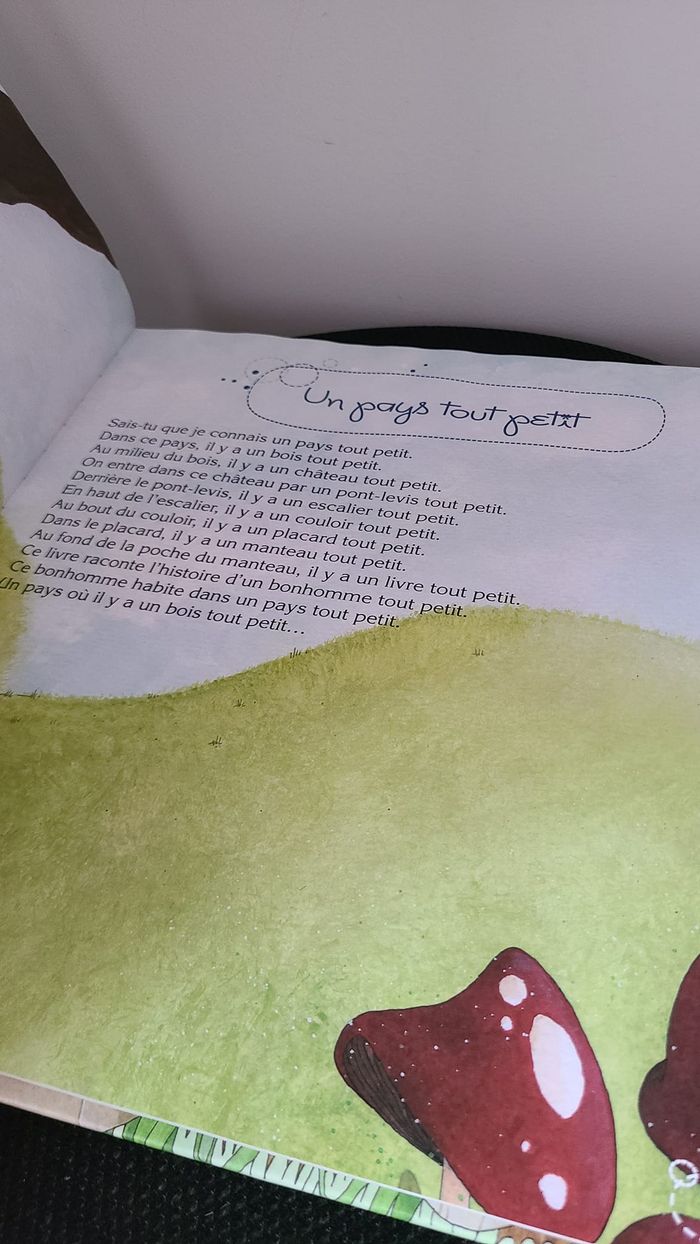 Un pays tout petit
Sais-tu que je connais un pays tout petit.
Dans ce pays, il y a un bois tout petit.
Au milieu du bois, il y a un château tout petit.
On entre dans ce château par un pont-levis tout petit.
Derrière le pont-levis, il y a un escalier tout petit.
En haut de l'escalier, il y a un couloir tout petit.
Au bout du couloir, il y a un placard tout petit.
Dans le placard, il y a un manteau tout petit.
Au fond de la poche du manteau, il y a un livre tout petit.
Ce livre raconte l'histoire d'un bonhomme tout petit.
Ce bonhomme habite dans un pays tout petit.
Un pays où il y a un bois tout petit...